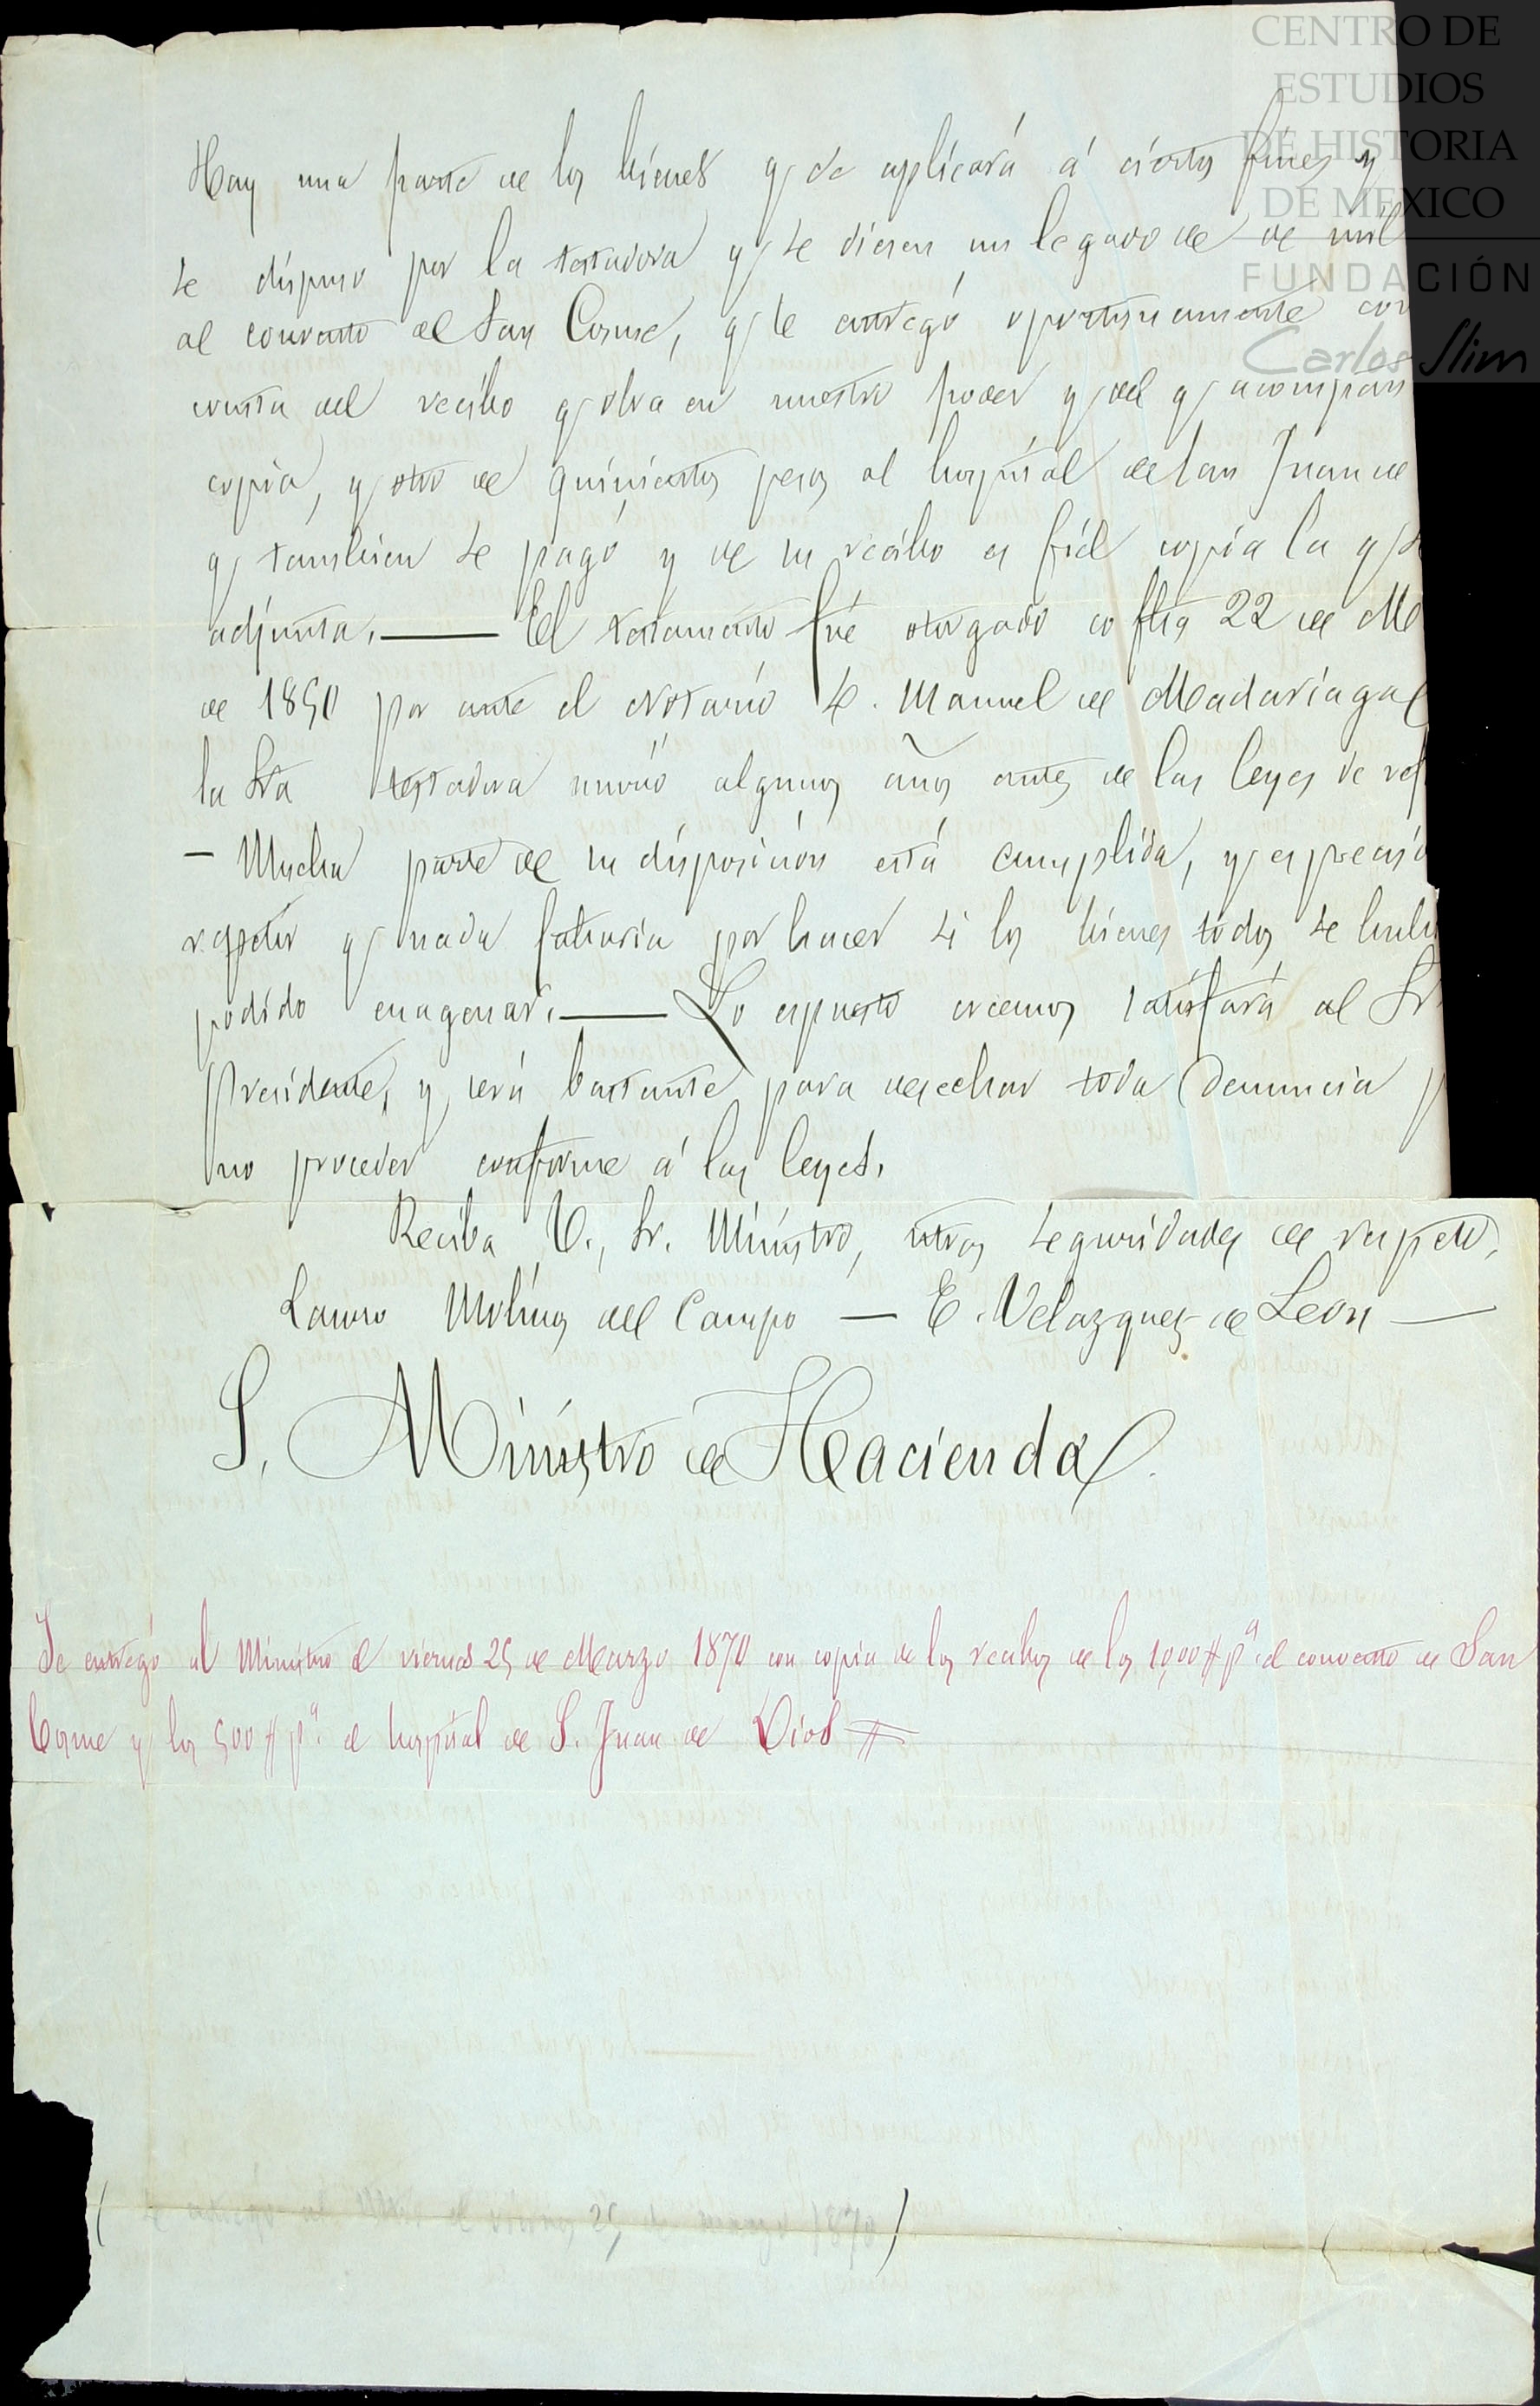 CENTRO DE
ESTUDIOS
DE HISTORIA
DE MEXICO
FUNDACIÓN
Carlos Slim
Hay una parte de los bienes q. se aplicará á ciertos fines y
se dispuso por la testadora q. se diesen un legado de de mil
al convento de San Cosme, q. se entregó oportunamente
consta del recibo q. obra en nuestro poder y del q. acompañ
copia, y otro de quinientos pesos al hospital de San Juan de
q. tambien se pagó y de su recibo es fiel copia la q.
adjunta. — El testamento fué otorgado co fha 22 de M
de 1850 por ante el Notario D. Manuel de Madariaga
la Sra testadora murió algunos años antes de las leyes de ref
— Mucha parte de su disposicion está cumplida, y es preciso
repetir q. nada faltaria por hacer si los bienes todos se hubi
podido enagenar. — Lo espuesto creemos satisfará al Sr.
Presidente, y será bastante para desechar toda denuncia p
no proceder conforme á las leyes.
Reciba V., Sr. Ministro, ntras seguridades de respeto.
Lauro Molinos del Campo — E. Velazquez de Leon —
S. Ministro de Hacienda
Se entregó al Ministro el viernes 25 de Marzo 1870 con copia de los recibos de los 1,000 $ pa. el convento de San
Cosme y los 500 $ pa. el hospital de S. Juan de Dios #
(Se entregó al Mtro el viernes 25 de marzo 1870)